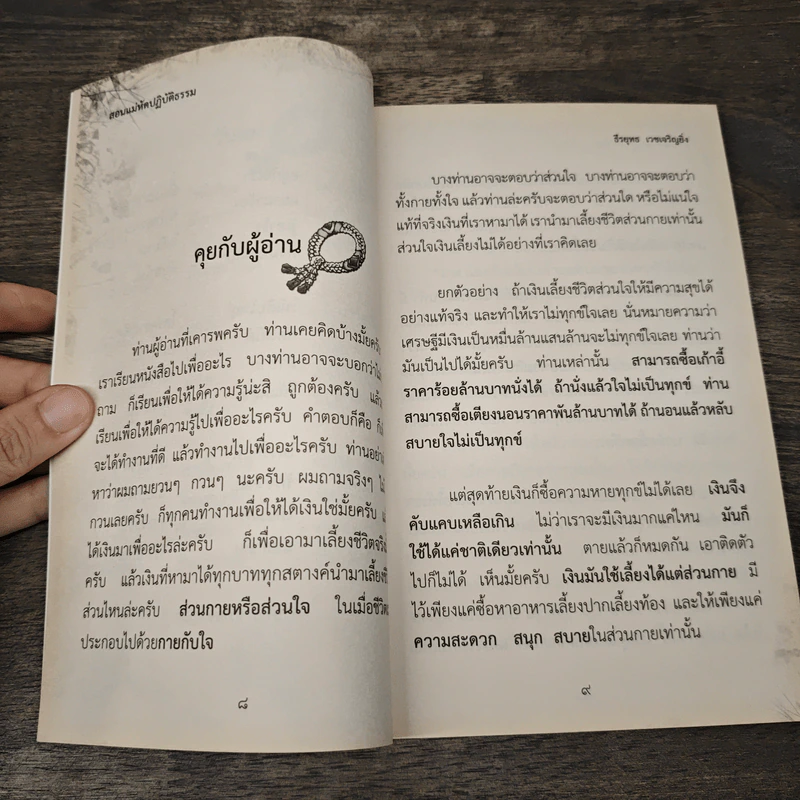 สอนแม่หัดปฏิบัติธรรม
คุยกับผู้อ่าน
ท่านผู้อ่านที่เคารพครับ ท่านเคยคิดบ้างมั้ยครับ
เราเรียนหนังสือไปเพื่ออะไร บางท่านอาจจะบอกว่า
ถาม ก็เรียนเพื่อให้ได้ความรู้น่ะสิ ถูกต้องครับ แล้ว
เรียนเพื่อให้ได้ความรู้ไปเพื่ออะไรครับ คำตอบก็คือ
จะได้ทำงานที่ดี แล้วทำงานไปเพื่ออะไรครับ ท่านอย่า
หาว่าผมถามยวนๆ กวนๆ นะครับ ผมถามจริงๆ
กวนเลยครับ ก็ทุกคนทำงานเพื่อให้ได้เงินใช่มั้ยครับ
ได้เงินมาเพื่ออะไรล่ะครับ ก็เพื่อเอามาเลี้ยงชีวิตจริง
ครับ แล้วเงินที่หามาได้ทุกบาททุกสตางค์นำมาเลี้ยงชี
ส่วนไหนล่ะครับ ส่วนกายหรือส่วนใจ ในเมื่อชีวิต
ประกอบไปด้วยกายกับใจ
๘
ธีรยุทธ เวชเจริญยิ่ง
บางท่านอาจจะตอบว่าส่วนใจ บางท่านอาจจะตอบว่า
ทั้งกายทั้งใจ แล้วท่านล่ะครับจะตอบว่าส่วนใด หรือไม่แน่ใจ
แท้ที่จริงเงินที่เราหามาได้ เรานำมาเลี้ยงชีวิตส่วนกายเท่านั้น
ส่วนใจเงินเลี้ยงไม่ได้อย่างที่เราคิดเลย
ยกตัวอย่าง ถ้าเงินเลี้ยงชีวิตส่วนใจให้มีความสุขได้
อย่างแท้จริง และทำให้เราไม่ทุกข์ใจเลย นั่นหมายความว่า
เศรษฐีมีเงินเป็นหมื่นล้านแสนล้านจะไม่ทุกข์ใจเลย ท่านว่า
มันเป็นไปได้มั้ยครับ ท่านเหล่านั้น สามารถซื้อเก้าอี้
ราคาร้อยล้านบาทนั่งได้ ถ้านั่งแล้วใจไม่เป็นทุกข์ ท่าน
สามารถซื้อเตียงนอนราคาพันล้านบาทได้ ถ้านอนแล้วหลับ
สบายใจไม่เป็นทุกข์
แต่สุดท้ายเงินก็ซื้อความหายทุกข์ไม่ได้เลย เงินจึง
คับแคบเหลือเกิน ไม่ว่าเราจะมีเงินมากแค่ไหน มันก็
ใช้ได้แค่ชาติเดียวเท่านั้น ตายแล้วก็หมดกัน เอาติดตัว
ไปก็ไม่ได้ เห็นมั้ยครับ เงินมันใช้เลี้ยงได้แต่ส่วนกาย มี
ไว้เพียงแค่ซื้อหาอาหารเลี้ยงปากเลี้ยงท้อง และให้เพียงแค่
ความสะดวก สนุก สบายในส่วนกายเท่านั้น
๙